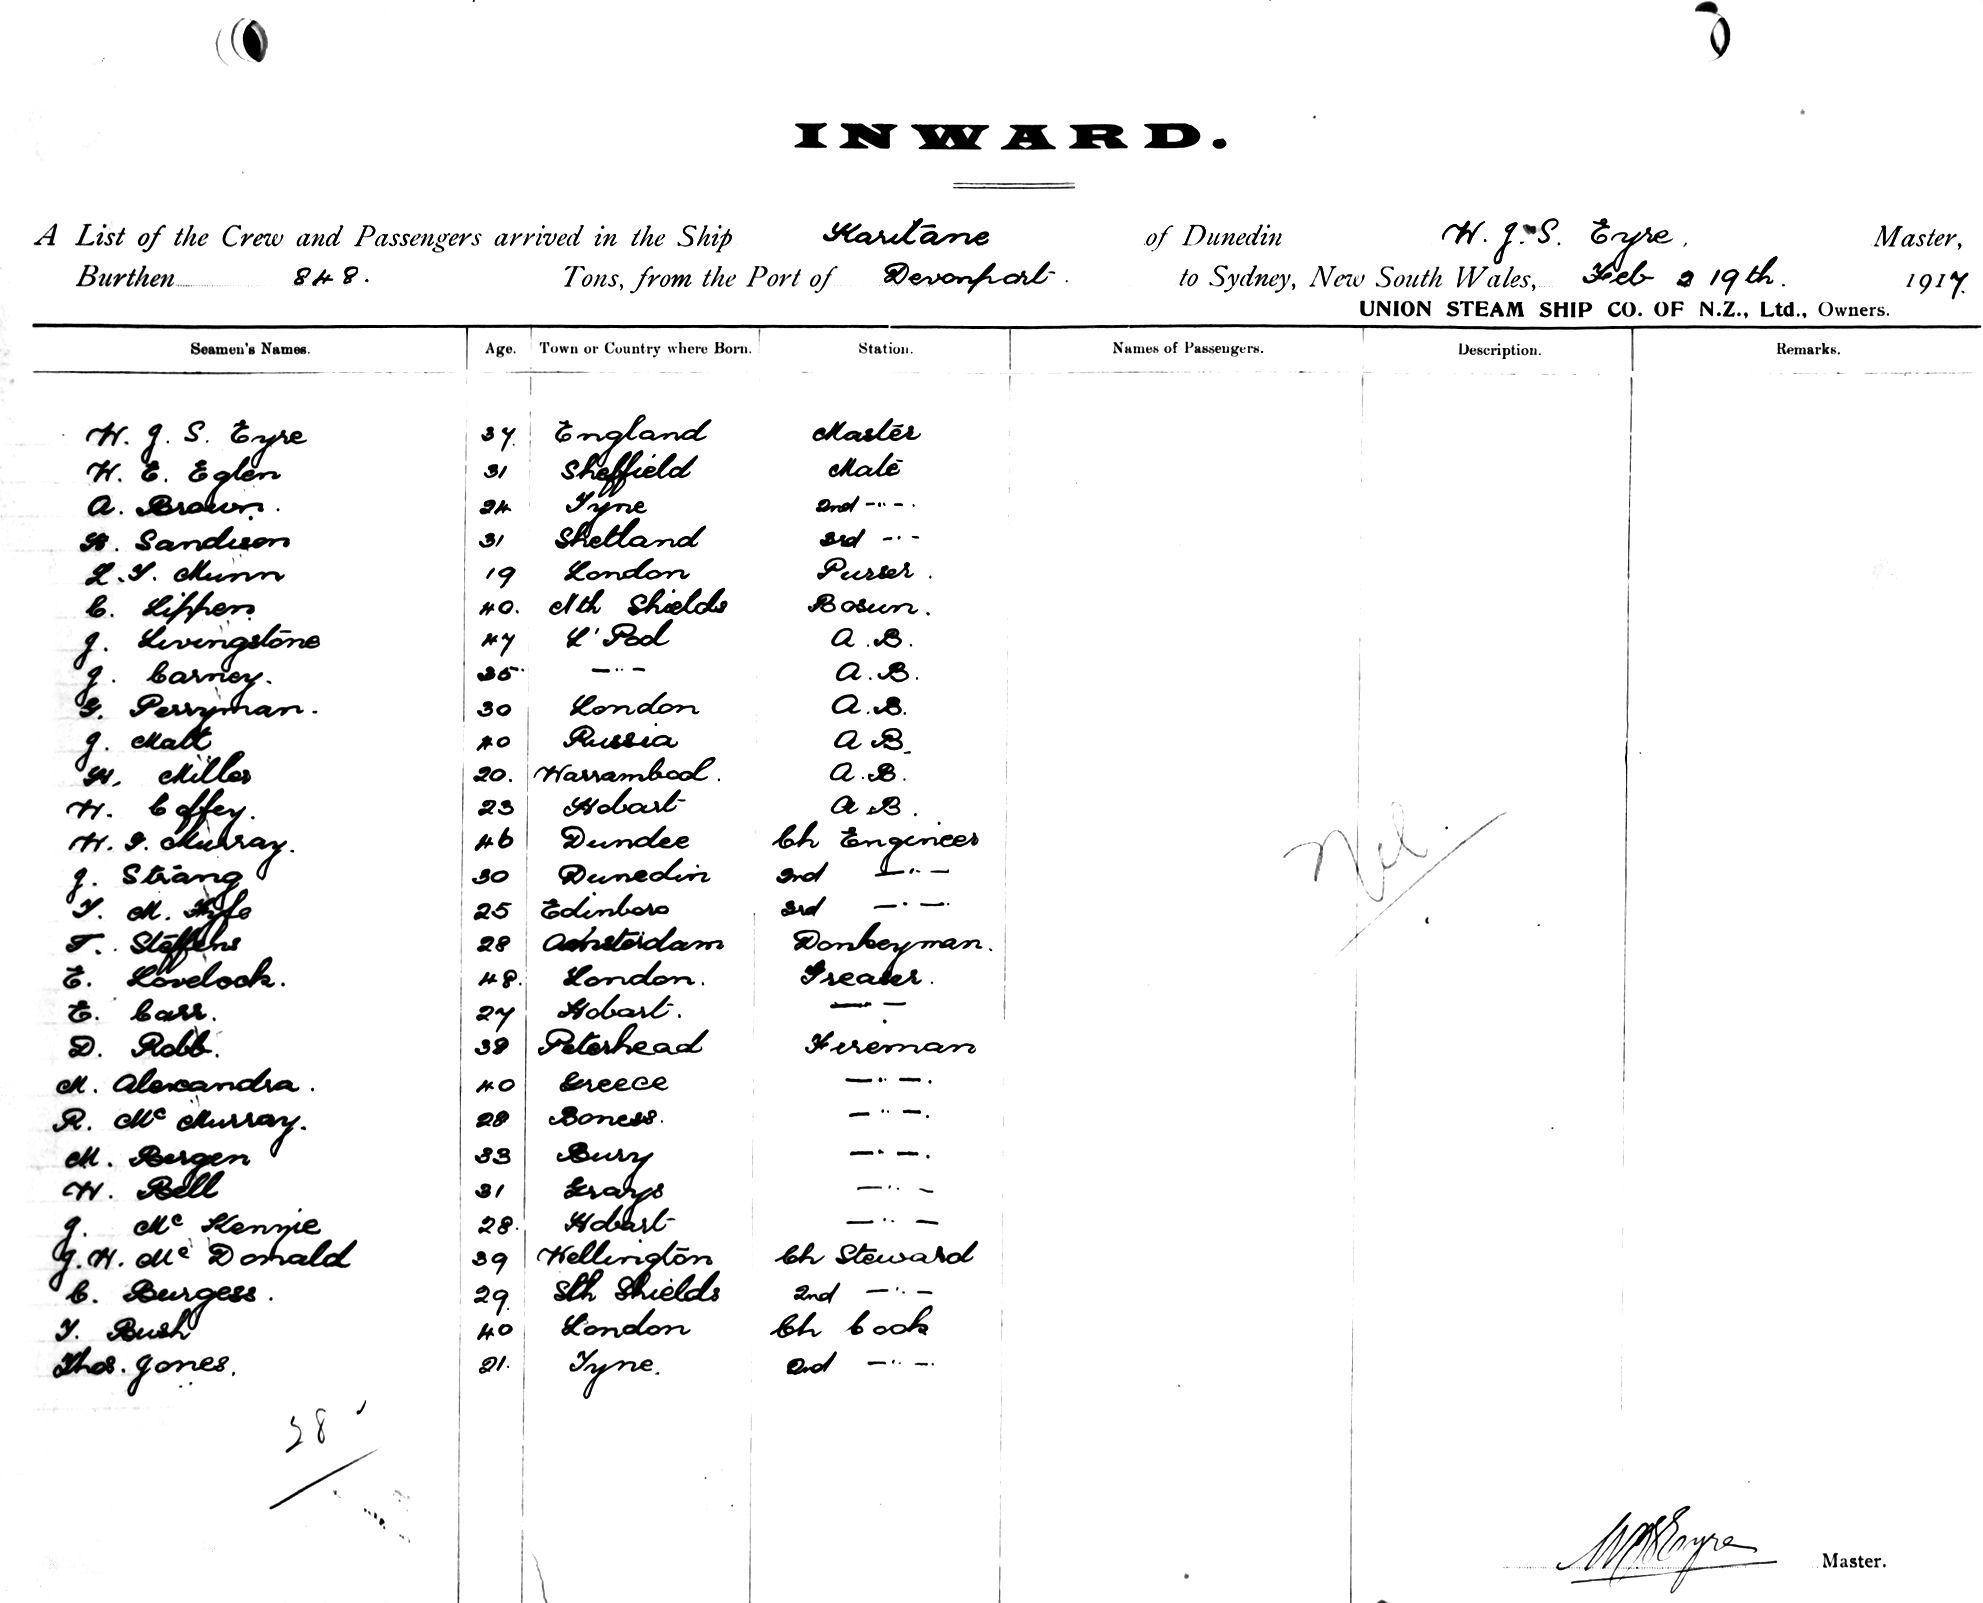 INWARD.
A List of the Crew and Passengers arrived in the Ship Karitane of Dunedin W. J. S. Eyre, Master,
Burthen 848. Tons, from the Port of Devonport. to Sydney, New South Wales, Feb 19th. 1917.
UNION STEAM SHIP CO. OF N.Z., Ltd., Owners.
Seamen's Names. Age. Town or Country where Born. Station. Names of Passengers. Description. Remarks.
W. J. S. Eyre 37. England Master
W. E. Eglen 31 Sheffield Mate
A. Brown. 24 Tyne 2nd —"—.
Sandison 31 Shetland 3rd —"—
L. T. Munn 19 London Purser.
C. Lippen 40. Nth Shields Bosun.
J. Livingstone 47 L'Pool A.B.
J. Carney. 35 —"— A.B.
G. Perryman. 30 London A.B.
J. Matt 40 Russia A B.
H. Miller 20. Warrambool. A.B.
W. Coffey. 23 Hobart A B.
W. G. Murray. 46 Dundee Ch Engineer
J. Strang 30 Dunedin 2nd —"—
T. M. Fyfe 25 Edinboro 3rd —"—.
T. Steffens 28 Amsterdam Donkeyman.
E. Lovelock. 48. London. Greaser.
E. Carr. 27 Hobart. —"—
D. Robb. 38 Peterhead Fireman
M. Alexandra. 40 Greece —"—.
R. Mc Murray. 28 Boness. —"—.
M. Bergen 33 Bury —"—.
W. Bell 31 Grays —"—
J. Mc Kennie 28. Hobart —"—
J. W. Mc Donald 39 Wellington Ch Steward
C. Burgess. 29. Sth Shields 2nd —"—
T. Bush 40 London Ch Cook
Thos. Jones. 21. Tyne. 2nd —"—.
Nil.
28
WJSEyre Master.